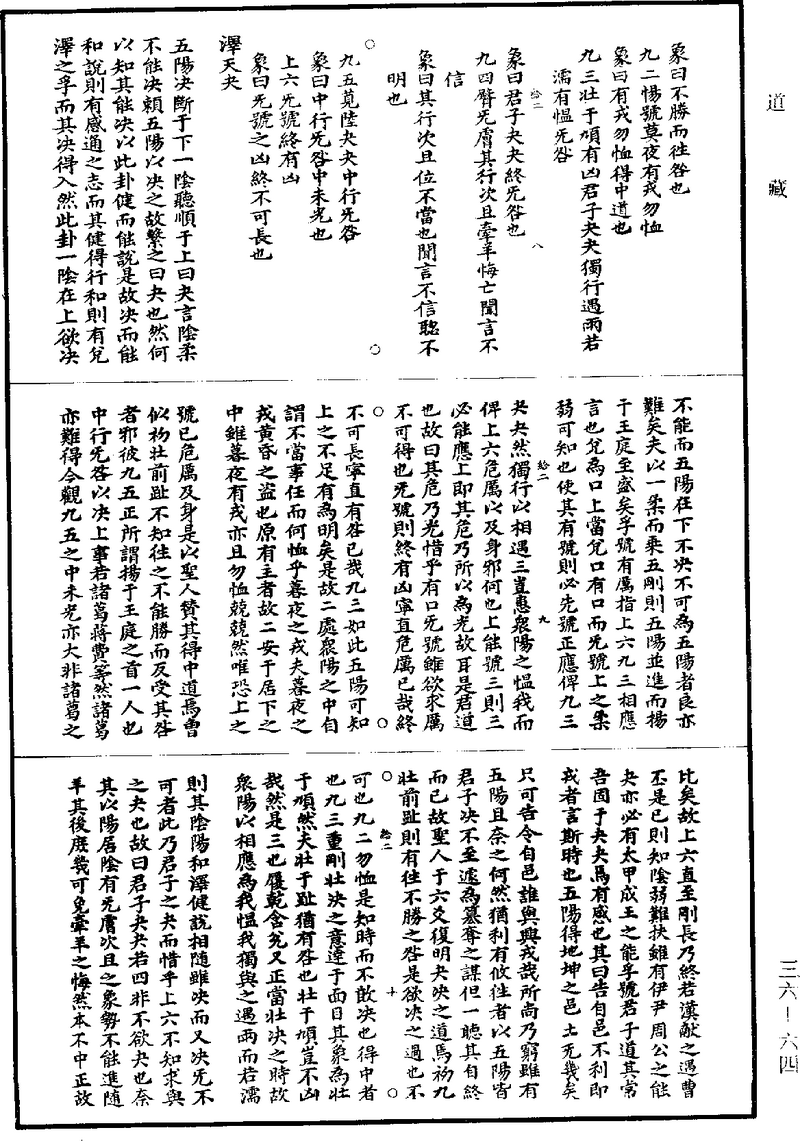 道藏
象曰不勝而徃咎也
九二惕號莫夜有戎勿恤
象曰有戎勿恤得中道也
九三壯于頄有凶君子夬夬獨行遇雨若
濡有慍旡咎
象曰君子夬夬終旡咎也
九四臀旡膚其行次且牽羊悔亡聞言不
信
象曰其行次且位不當也聞言不信聦不
明也
九五莧陸夬夬中行旡咎
象曰中行旡咎中未光也
上六旡號終有凶
象曰旡號之凶終不可長也
澤天夬
五陽决斷于下一陰聽順于上曰夬言陰柔
不能决頼五陽以决之故繫之曰夬也然何
以知其能决以此卦健而能說是故决而能
和說則有感通之志而其健得行和則有兌
澤之孚而其决得入然此卦一陰在上欲决
不能而五陽在下不决不可為五陽者良亦
難矣夫以一柔而乘五剛則五陽並進而揚
于王庭至盛矣孚號有厲指上六九三相應
言也兌為口上當兌口有口而旡號上之柔
弱可知也使其有號則必先號正應俾九三
夬夬然獨行以相遇三豈惠衆陽之慍我而
俾上六危厲以及身邪何也上能號三則三
必能應上即其危乃所以為光故耳是君道
也故曰其危乃光惜乎有口旡號雖欲求厲
不可得也旡號則終有凶寧直危厲已哉終
不可長寧直有咎已哉九三如此五陽可知
上之不足有為明矣是故二處衆陽之中自
謂不當事任而何恤乎暮夜之戎夫暮夜之
戎黃昏之盗也原有主者故二安于居下之
中雖暮夜有戎亦且勿恤兢兢然唯恐上之
號已危厲及身是以聖人賛其得中道焉曹
似初壯前趾不知徃之不能勝而反受其咎
者邪彼九五正所謂揚于王庭之首一人也
中行旡咎以决上事若諸葛蔣費等然諸葛
亦難得今觀九五之中未光亦大非諸葛之
比矣故上六直至剛長乃終若漢獻之遇曹
丕是已則知陰弱難扶雖有伊尹周公之能
夬亦必有太甲成王之能孚號君子道其常
吾固于夬夬焉有感也其曰告自邑不利即
戎者言斯時也五陽得地坤之邑土旡幾矣
只可告令自邑誰與興戎哉所尚乃窮雖有
五陽且奈之何然猶利有攸徃者以五陽皆
君子决不至遽為纂奪之謀但一聽其自終
而已故聖人于六爻復明夬决之道焉初九
壯前趾則有徃不勝之咎是欲决之過也不
可也九二勿恤是知時而不敢决也得中者
也九三重剛壯决之意達于面目其象為壯
于頄然夫壯于趾猶有咎也壯于頄豈不凶
哉然是三也履乾含兌又正當壯决之時故
衆陽以相應為我慍我獨與之遇雨而若濡
則其陰陽和澤健說相随雖决而又决旡不
可者此乃君子之夬而惜乎上六不知求與
之夬也故曰君子夬夬若四非不欲夬也奈
其以陽居陰有旡膚次且之象勢不能進隨
羊其後庶幾可免牽羊之悔然本不中正故
三六－六四